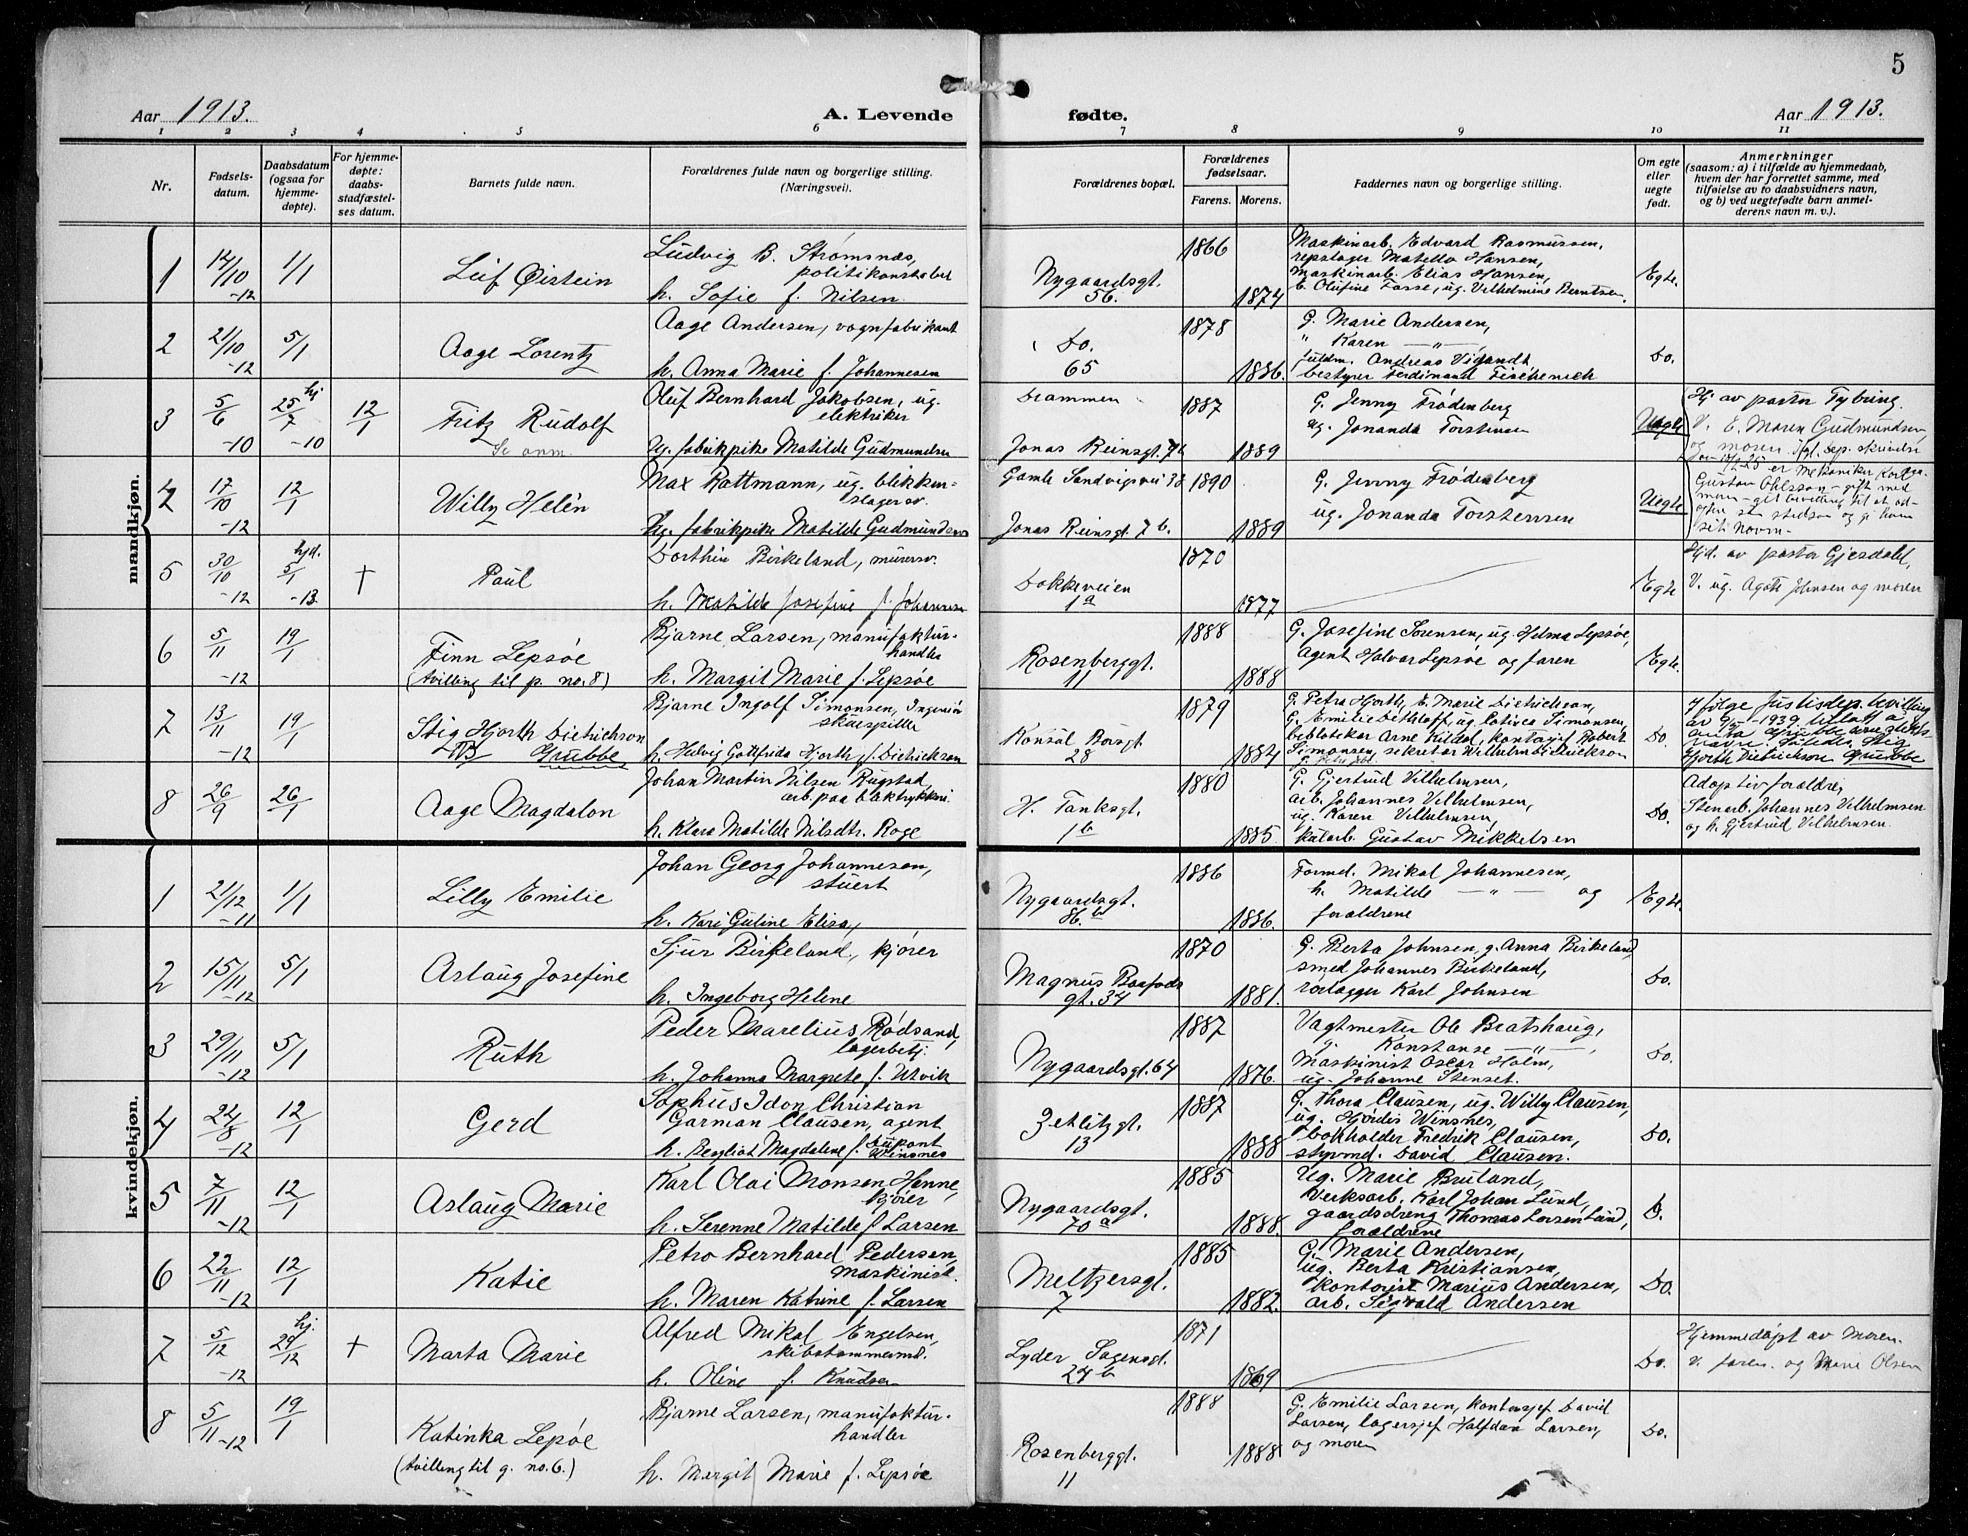 5
Aar 1913.
A. Levende fødte.
Aar 1913.
1 2 3 4 5 6 7 8 9 10 11
Nr.
Fødsels-
datum.
Daabsdatum
(ogsaa for
hjemme-
døpte).
For hjemme-
døpte:
daabs-
stadfæstel-
ses datum.
Barnets fulde navn.
Forældrenes fulde navn og borgerlige stilling.
(Næringsvei).
Forældrenes bopæl.
Forældrenes
fødselsaar.
Farens. Morens.
Faddernes navn og borgerlig stilling.
Om egte
eller
uegte
født.
Anmerkninger
(saasom: a) i tilfælde av hjemmedaab,
hvem der har forrettet samme, med
tilføielse av to daabsvidners navn,
og b) ved uegtefødte barn anmel-
derens navn m. v.).
mandkjøn.
1
14/10 -12
1/1
Leif Øistein
Ludvig B. Strømsnæs,
politikonstabel
h. Sofie f. Nilsen.
Nygaardsgt.
56.
1866
1874
Maskinarb. Edvard Rasmussen,
repslager Hansen,
Maskinarb. Elias Hansen,
E. Olufine Fosse, ug. Vilhelmine Berntsen.
Egte.
2
21/10 -12
5/1
Aage Lorentz
Aage Andersen, vognfabrikant
h. Anna Marie f. Johannesen
Do.
65
1878
1886.
G. Marie Andersen,
" Karen — " —,
fuldm. Andreas Vigandt
bestyrer Ferdinand
Do.
3
5/6 -10
hj
25/7 -10
12/1
Fritz Rudolf
Se anm.
Oluf Bernhard Jakobsen, ug.
elektriker
Ug. fabrikpike Matilde Gudmundsen
Drammen
Jonas Reinsgt. 7b
1887
1889
G. Jenny Frødenberg
ug. Jonanda Torstensen
Uegte
Hj. av pastor Tybring.
V. E. Maren Gudmundsen,
og moren. Ifl. dep. skrivelse
er mekaniker Karl
Gustav Ohlsson - gift med
moren - git bevilling til at ad-
optere sin stedsøn og gi ham
sit navn.
4
17/10 -12
12/1
Willy Helén
Max Rottmann, ug. blikken-
slagersv.
Ug. fabrikpike Matilde Gudmundsen
Gamle Sandvigsvei 38
Jonas Reinsgt. 7 b.
1890
1889
G. Jenny Frødenberg
ug. Jonanda Torstensen
Uegte
5
30/10 -12
hjd.
5/1 -13
+
Paul
Dorthin Birkeland, murersv.
h. Matilde Josefine f. Johannesen
Dokkeveien
1a
1870
1877
Egte
Hjd. av pastor Gjesdahl,
V. ug. Agate Johnsen og moren
6
5/11 -12
19/1
Finn Lepsøe
(tvilling til p. no. 8)
Bjarne Larsen, manufaktur-
handler
h. Margit Marie f. Lepsøe
Rosenberggt.
11
1888
1888
G. Josefine Sørensen, ug. Helma Lepsøe,
Agent Halvar Lepsøe og faren
Egte.
7
13/11 -12
19/1
Stig Hjorth Dietrichson
NB Grubbe
Bjarne Ingolf Simonsen, Ingeniør
skuespiller
h. Helvig Gottfrida Hjorth f. Dietrichson
Konsul Børsgt.
28
1879
1884
G. Petra Hjorth, E. Marie Dietrichson,
G. Emilie Dethloff, ug. Lovisa Simonsen,
bibliotekar Arne Kildal, kontorsjef Robert
Simonsen, sekretær Wilhelm Dietrichson
Do.
Ifølge Justisdep. bevilling
av 1939 tillatt å
anta Grubbe
navn. Således: Stig
Hjorth Dietrichson Grubbe
8
26/9
26/1
Aage Magdalon
Johan Martin Nilsen Rugstad
arb. paa blaktrykkeri
h. Klara Matilde Nilsdtr. Roge
H. Tanksgt.
1b
1880
1885.
G. Gjertrud Vilhelmsen,
arb. Johannes Vilhelmsen,
ug. Karen Vilhelmsen,
kularb. Gustav Mikkelsen
Do.
Adoptivforældre,
Stenarb. Johannes Vilhelmsen
og h. Gjertrud Vilhelmsen.
kvindekjøn.
1
21/12 -11
1/1
Lilly Emilie
Johan Georg Johannesen,
stuert
h. Kari Guline Elisa,
Nygaardsgt.
86 b
1886
1886.
Formd. Mikal Johannesen,
h. Matilde — " — og
forældrene
Egte.
2
15/11 -12
5/1
Aslaug Josefine
Sjur Birkeland, kjører
h. Ingeborg Helene
Magnus Barfods
gt. 34
1870
1881.
G. Berta Johnsen, g. Anna Birkeland,
smed Johannes Birkeland,
rørlægger Karl Johnsen
Do.
3
29/11 -12
5/1
Ruth
Peder Marelius Rødsand,
lagerbetj.
h. Johanna Margrete f. Utvik
Nygaardsgt. 64
1887
1876.
Vagtmester Ole Bratshaug,
g. Konstanse — " —,
Maskinist Oscar Holm,
ug. Johanne Stenset.
Do.
4
24/8 -12
12/1
Gerd
Sophus Idon Christian
Garman Clausen, agent
h. Bergliot Magdalene f. Dupont
Winsnes
Zetlitzgt.
13
1887
1888
G. Thora Clausen, ug. Willy Clausen,
ug. Hjørdis Winsnes,
bokholder Fredrik Clausen,
styrmd. David Clausen.
Do.
5
7/11 -12
12/1
Aslaug Marie
Karl Olai Monsen Henne,
kjører
h. Serenne Matilde f. Larsen
Nygaardsgt.
70 a
1885
1888.
Ug. Marie Bruland,
Verksarb. Karl Johan Lund,
gaardsdreng Thomas Larsen Lund,
forældrene
D.
6
22/11 -12
12/1
Katie
Petro Bernhard Pedersen,
maskinist.
h. Maren Katrine f. Larsen
Meltzersgt.
7
1885
1882.
G. Marie Andersen,
Ug. Berta Kristiansen,
kontorist Marius Andersen,
arb. Sigvald Andersen
Do.
7
5/12 -12
hj.
29/12
+
Marta Marie
Alfred Mikal Engelsen,
skibstømmermd.
h. Oline f. Knudsen
Lyder Sagensgt.
24 b
1871
1869
Do.
Hjemmedøpt av Moren.
V. faren og Marie Olsen
8
5/11 -12
19/1
Katinka Lepsøe
(tvilling til g. no. 6.)
Bjarne Larsen, manufaktur-
handler
h. Margit Marie f. Lepsøe
Rosenberggt.
11
1888
1888.
G. Emilie Larsen, kontorsjef David
Larsen, lagersjef Halfdan Larsen,
og moren
Do.